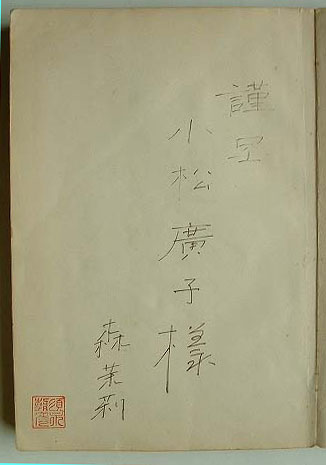 謹呈
小松廣子様
森茉莉